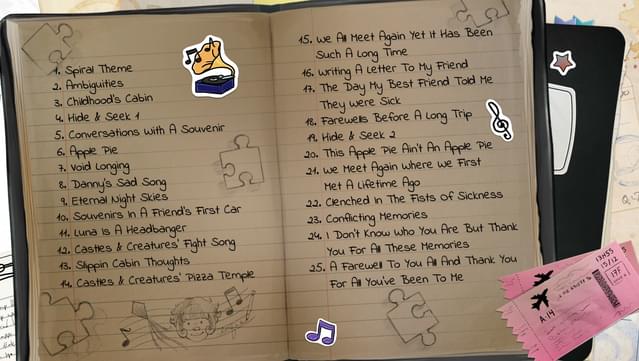 1. Spiral Theme
2. Ambiguities
3. Childhood's Cabin
4. Hide & Seek 1
5. Conversations With A Souvenir
6. Apple Pie
7. Void Longing
8. Danny's Sad Song
9. Eternal Night Skies
10. Souvenirs In A Friend's First Car
11. Luna Is A Headbanger
12. Castles & Creatures' Fight Song
13. Slippin Cabin Thoughts
14. Castles & Creatures' Pizza Temple
15. We All Meet Again Yet It Has Been
Such A Long Time
16. Writing A Letter To My Friend
17. The Day My Best Friend Told Me
They Were Sick
18. Farewells Before A Long Trip
19. Hide & Seek 2
20. This Apple Pie Ain't An Apple Pie
21. We Meet Again Where We First
Met A Lifetime Ago
22. Clenched In The Fists of Sickness
23. Conflicting Memories
24. I Don't Know Who You Are But Thank
You For All These Memories
25. A Farewell To You All And Thank You
For All You've Been To Me
13H55
15/12
17F
A14